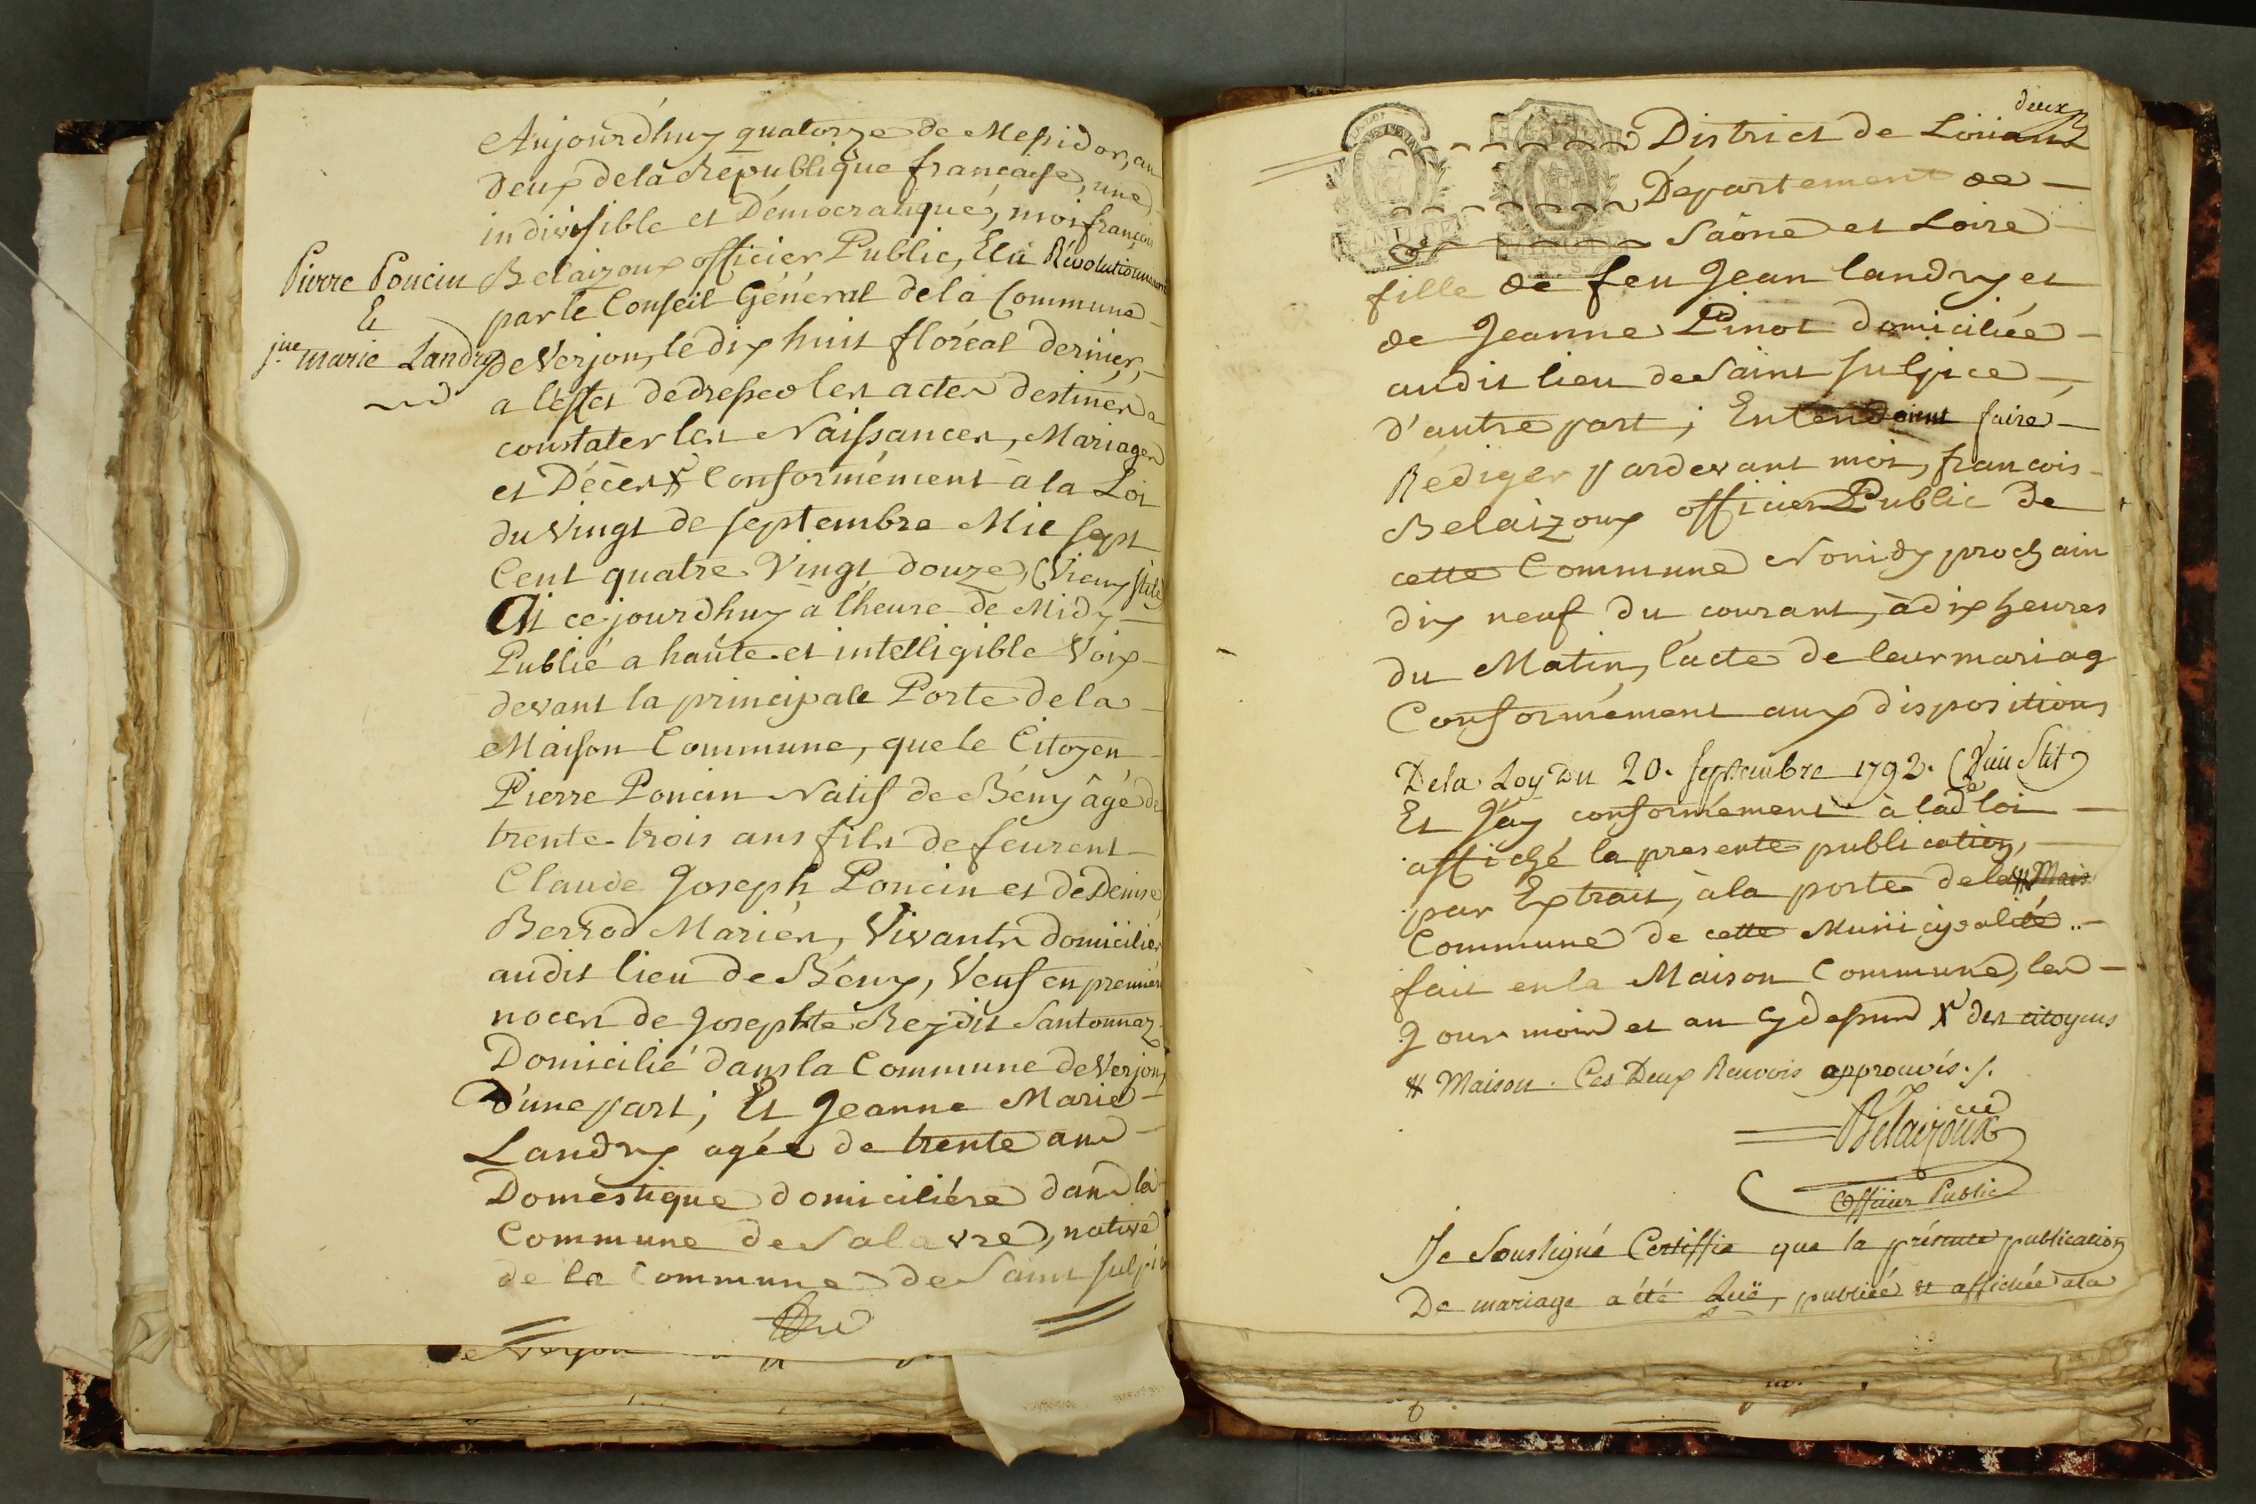 Pierre Poncin
Et
jne marie Landry
Aujourd'huy quatorze de Messidor, an
deux de la Republique française, une
indivisible et Démocratique, moi françois
Belaizoux officier Public, Elu Révolutionnairement
par le Conseil Général de la Commune
de Verjon, le dix huit floréal dernier,
a l'effet de dresser les actes destinés a
constater les Naissances, Mariages
et Décès X Conformément à la Loi
du Vingt de septembre Mil sept
Cent quatre Vingt douze, (Vieux stile)
Ai cejourdhuy à l'heure de Midy
Publié a haute et intelligible Voix
devant la principale Porte de la
Maison Commune, que le Citoyen
Pierre Poncin Natif de Bény âgé de
trente trois ans fils de feurent
Claude Joseph Poncin et de Denise
Berrod Mariés, Vivants domiciliés
audit lieu de Bény, Veuf en premières
noces de Josephte Rey dit Santonnaz
Domicilié dans la Commune de Verjon
D'une part; Et Jeanne Marie
Landry agée de trente ans
Domestique domiciliére dans la
Commune de Salavre, native
de la Commune de Saint sulpice
deux
District de Louans
Département de
Saône et Loire
fille de feu Jean landry et
de Jeanne Pinot domiciliée
audit lieu de Saint sulpice
d'autre part; Entendoient faire
Rédiger pardevant moi, francois
Belaizoux officier Public de
cette Commune Nonidy prochain
dix neuf du courant, à dix heures
du Matin, l'acte de leur mariag
Conformément aux dispositions
De la Loy du 20. septembre 1792. (Vieu Stil)
Et J'ay conformément à lade loi
affiché la presente publication,
par Extrait, à la porte de la # Mais
Commune de cette Municipalité
fait en la Maison Commune, les
Jour mois et an cydessus X des citoyens
# Maison. Ces Deux Renvois approuvés./.
Belaizoux
Officier Public
Je Soussigné Certiffie que la présente publication
De mariage a été Luë, publiée et affichée ala